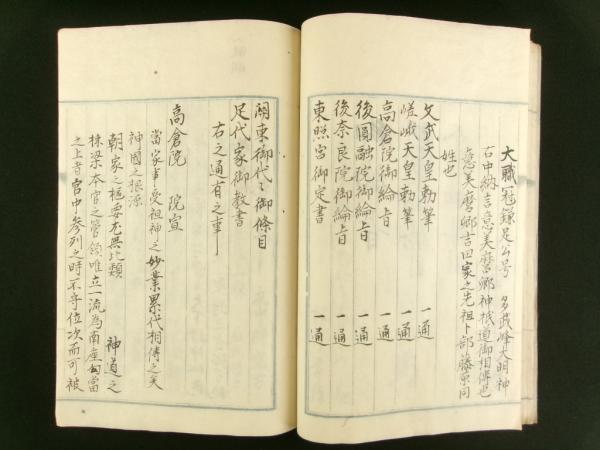 大職冠鎌足公号 多武峰大明神
右中納言意美麿卿神祇道御相傳也
意美麿卿吉田家之先祖卜部藤原同
姓也
文武天皇勅筆 一通
嵯峨天皇勅筆 一通
高倉院御綸旨 一通
後圓融院御綸旨 一通
後奈良院御綸旨 一通
東照宮御定書 一通
関東御代々御條目
足代家御教書
右之通有之事
高倉院 院宣
當家事受祖神之妙業累代相傳之矣
神國之根源
朝家之樞要尤無比類 神道之
棟梁本官之管領唯立一流為南座勾當
之上者官中参列之時不守位次而可被